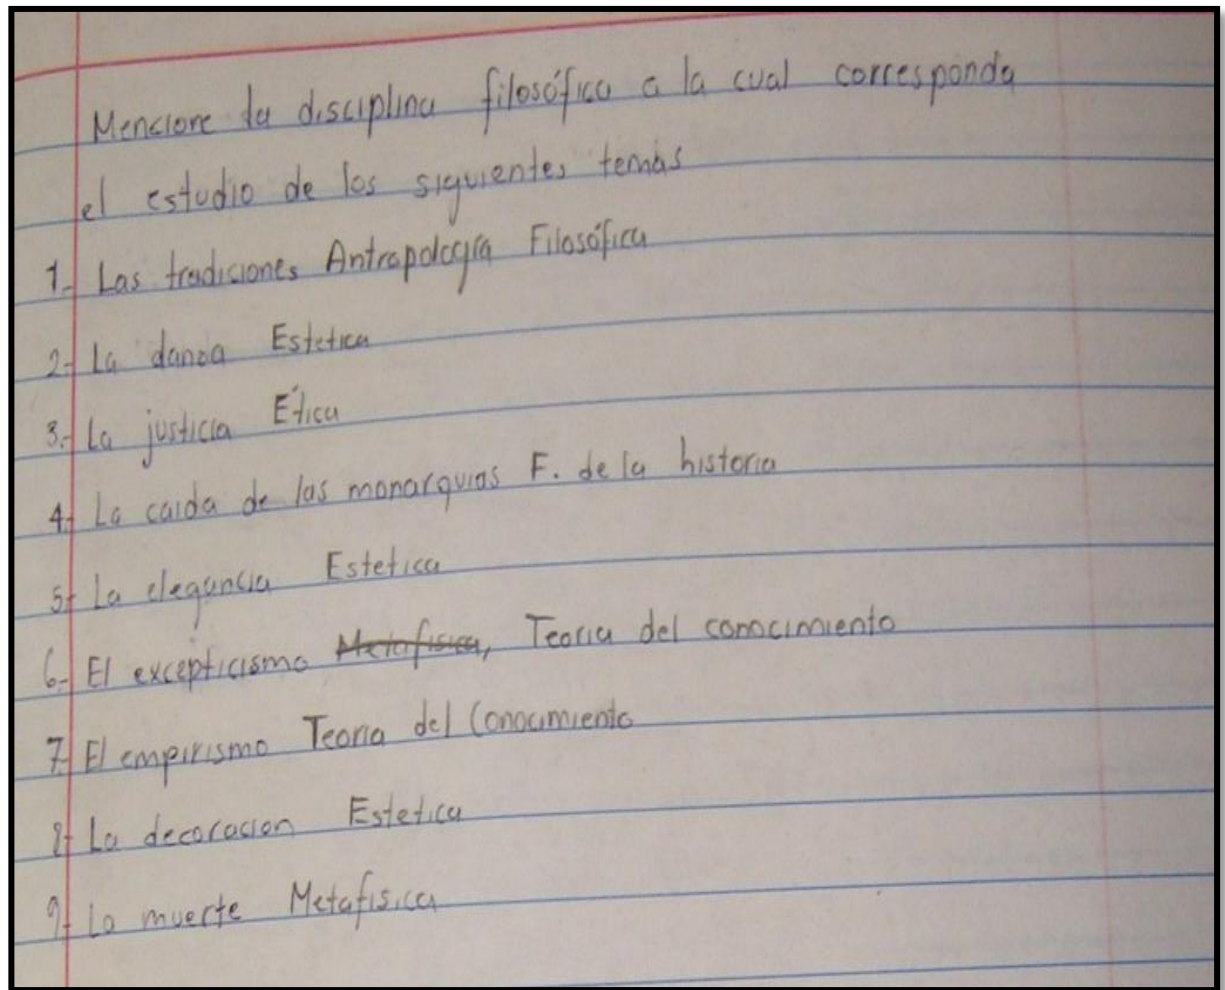 Mencione la disciplina filosófica a la cual corresponda
el estudio de los siguientes temas
1.- Las tradiciones Antropología Filosófica
2.- La danza Estetica
3.- La justicia Ética
4.- La caida de las monarquias F. de la historia
5.- La elegancia Estetica
6.- El excepticismo Metafisica, Teoria del conocimiento
7.- El empirismo Teoria del Conocimiento
8.- La decoracion Estetica
9.- La muerte Metafisica